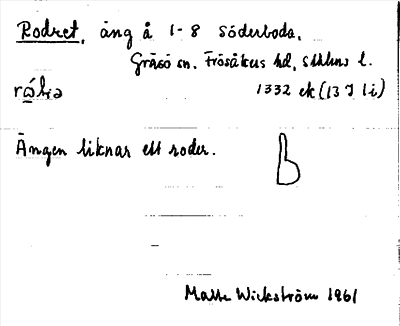 Rodret, äng å 1-8 Söderboda,
Gräsö sn. Frösåkers hd, Sthlms l.
1332 ek (13 J 1 i)
Ängen liknar ett roder.
Matts Wickström 1961